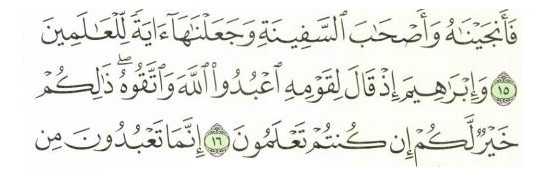 فَأَنجَيْنَٰهُ وَأَصْحَٰبَ ٱلسَّفِينَةِ وَجَعَلْنَٰهَآ ءَايَةً لِّلْعَٰلَمِينَ
١٥ وَإِبْرَٰهِيمَ إِذْ قَالَ لِقَوْمِهِ ٱعْبُدُوا۟ ٱللَّهَ وَٱتَّقُوهُ ۖ ذَٰلِكُمْ
خَيْرٌ لَّكُمْ إِن كُنتُمْ تَعْلَمُونَ ١٦ إِنَّمَا تَعْبُدُونَ مِن